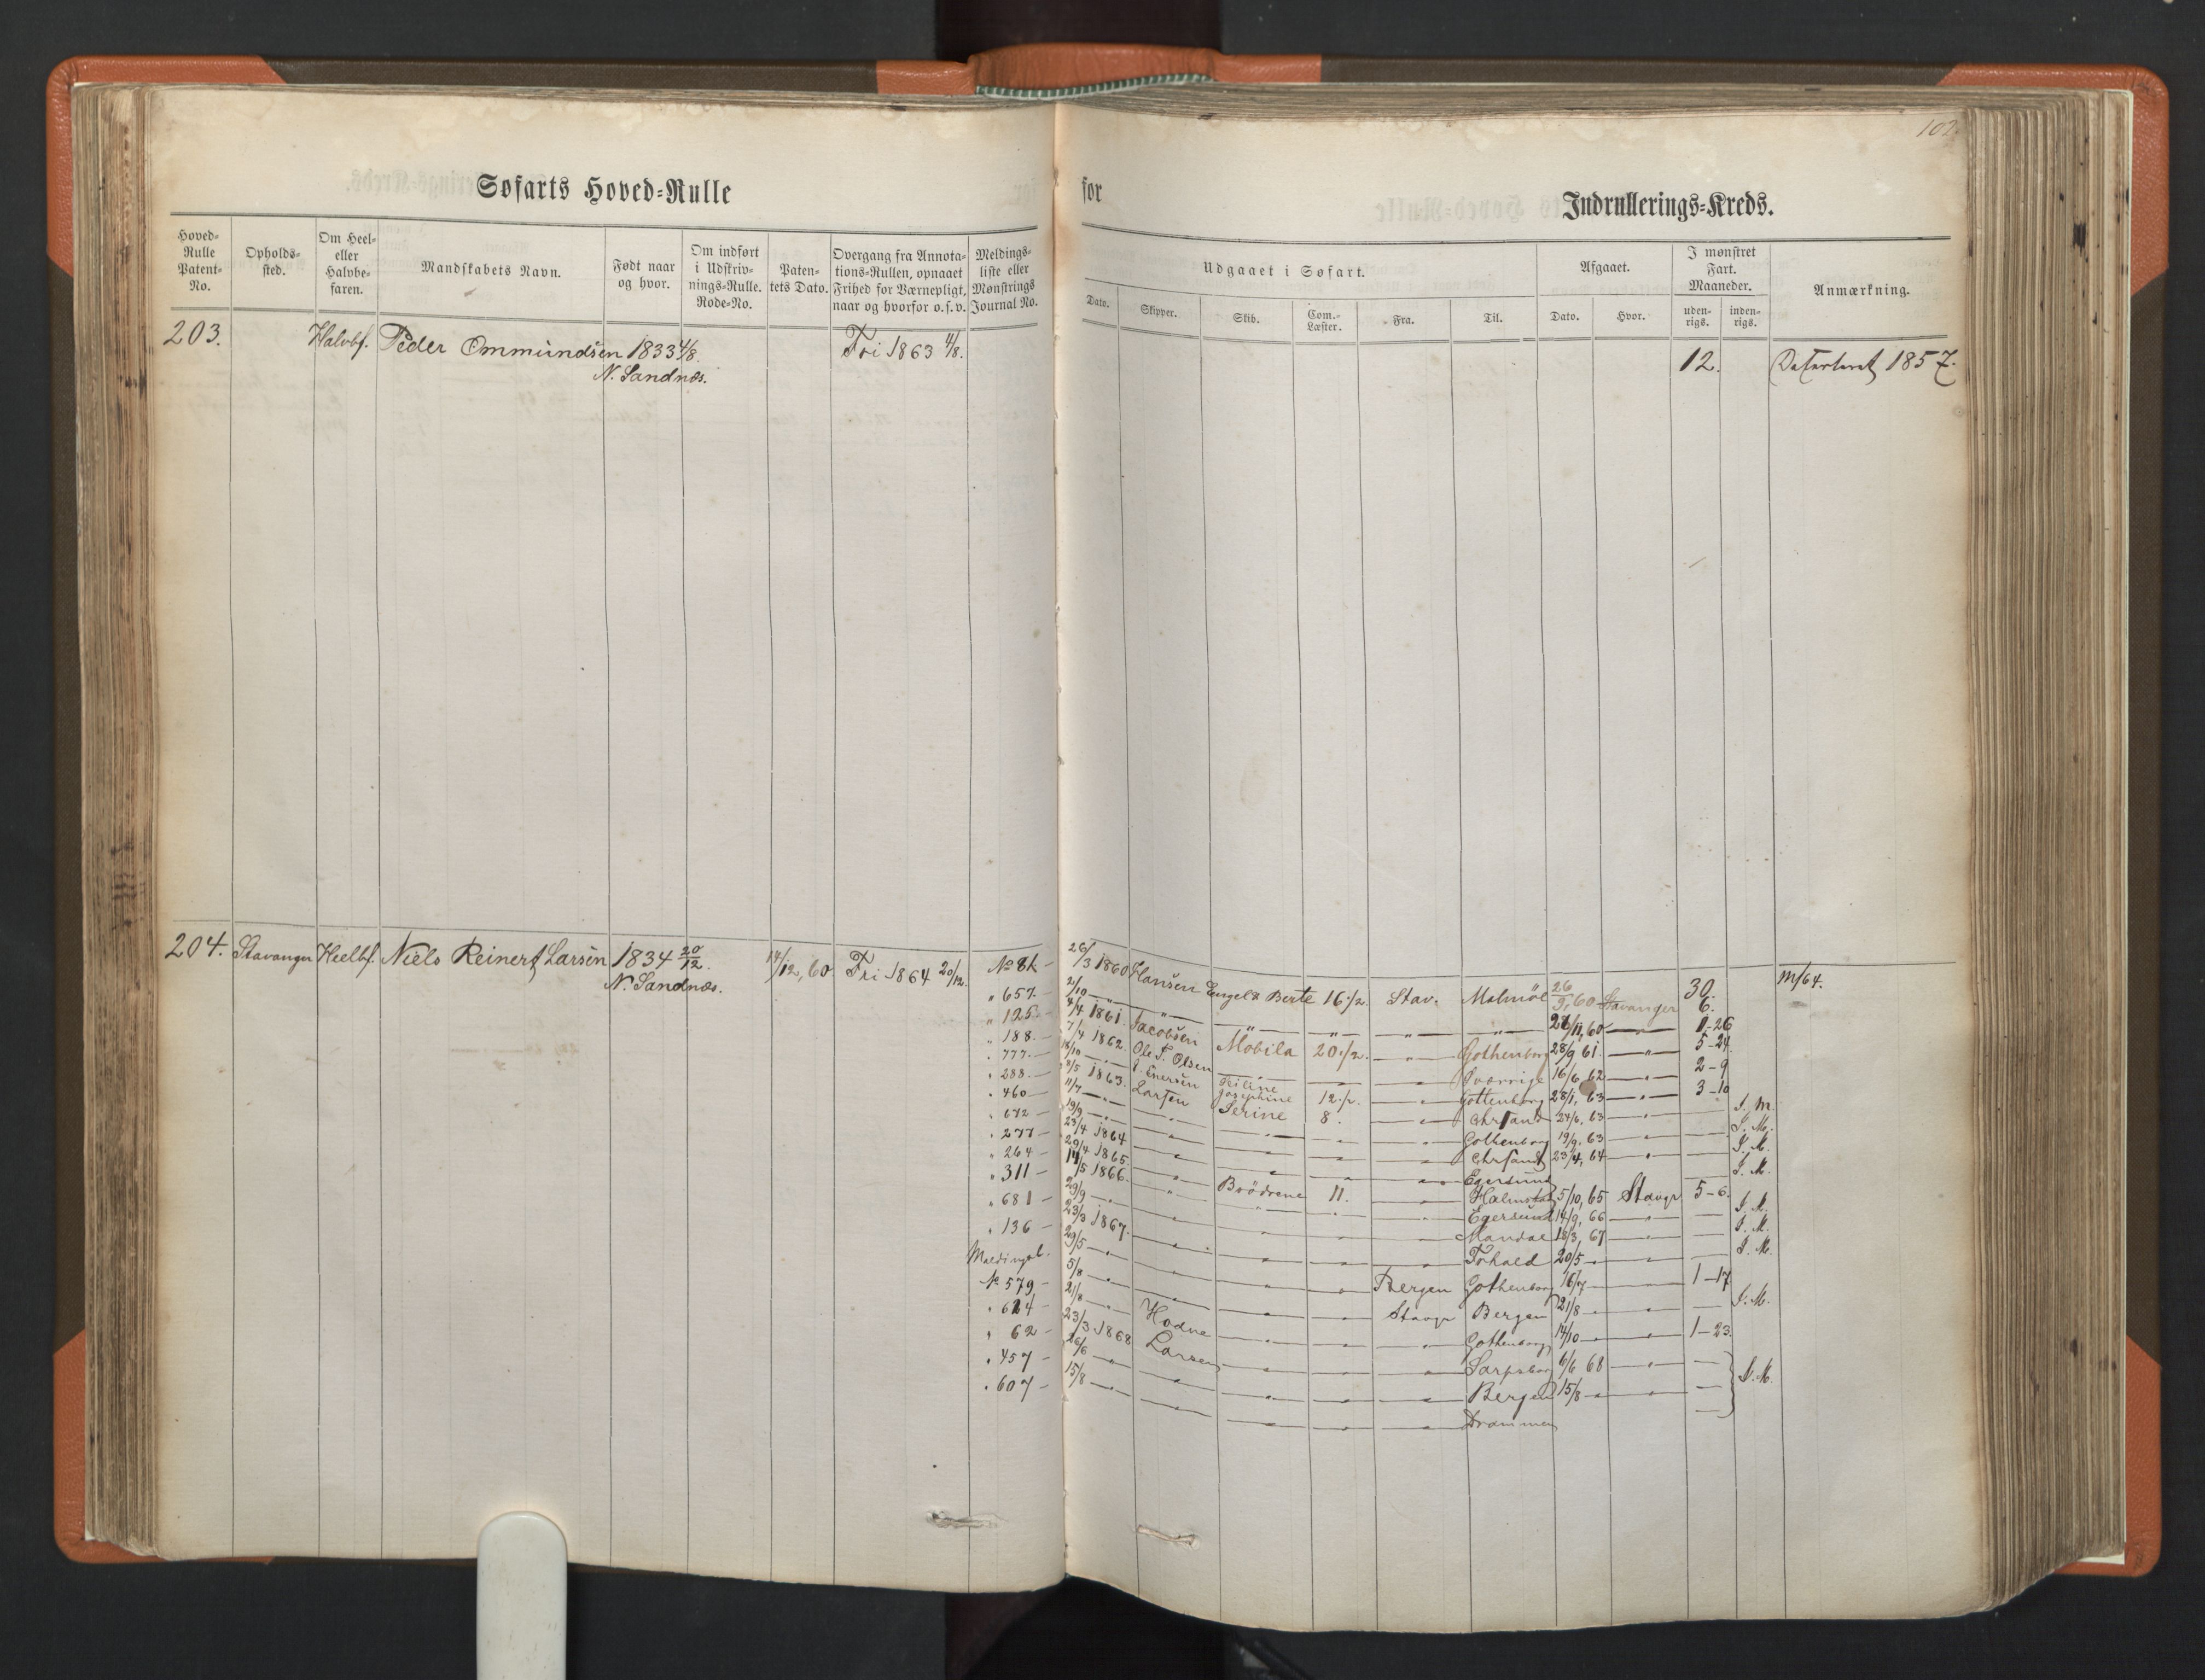 102
Søfarts Hoved-Rulle
for
Indrullerings-Kreds.
Hoved-Rulle Patent-No.
Opholds-sted.
Om Heel- eller Halvbe-faren.
Mandskabets Navn.
Født naar og hvor.
Om indført i Udskriv-nings-Rulle. Rode-No.
Paten-tets Dato.
Overgang fra Annota-tions-Rullen, opnaaet Frihed for Værnepligt, naar og hvorfor o.s.v.
Meldings-liste eller Mønstrings Journal No.
Udgaaet i Søfart.
Dato.
Skipper.
Skib.
Com.-Læster.
Fra.
Til.
Afgaaet.
Dato.
Hvor.
I mønstret Fart. Maaneder.
uden-rigs.
inden-rigs.
Anmærkning.
203. Halvbf. Peder Ommundsen 1833 4/8. Fri 1863 4/8. 12. 1857.
N. Sandnæs.
204. Stavanger Heelbf. Niels Reinert Larsen 1834 20/12. 14/12, 60 Fri 1864 20/12. m/64.
N. Sandnæs.
No 81 - 26/3 1860 Hansen Engel Berte 16 1/2 Stav. Malmöe 26/9, 60 Stavanger 30. 6.
" 657. - 2/10 — " — 26/11, 60 — " — 1-26
" 125. - 4/4 1861. Jacobsen Mobila 20 1/2. — " — Gothenborg 28/9 61. — " — 5-24.
" 188. - 7/4 1862. Ole T. Olsen — Sverrige 16/6 62 — " — 2-9
" 777. - 18/10 — E. Enersen — Gottenborg 28/1, 63 — " — 3-10
" 288. - /5 1863. Larsen Josephine 12 1/2. — Chrsand 24/6, 63 — " — I. M.
" 460 - 11/7 — " — Serine 8. — Gothenborg 19/9. 63 — " — I. M.
" 672 - 19/9 — " — Chrsand 23/4, 64 — " — I. M.
" 277 - 23/4 1864 — " — Egersund — I. M.
" 264 - 29/4 1865. — " — Brödrene 11. — Halmstad 5/10, 65 Stavgr 5-6.
" 311 - 14/5 1866. — " — Egersund 14/9, 66 — " — I. M.
" 681 - 29/9 — " — Mandal 18/3, 67 — " — I. M.
" 136 - 23/3 1867. — " — Frhald 20/5 — " — I. M.
Meldingsl. 29/5 — " — Bergen Gothenborg 16/7 — " — 1-17
No 579 - 5/8 — " — Stavgr Bergen 21/8 — " — I. M.
" 624 - 21/8 — " — Hodne — Gothenborg 14/10 — " — 1-23.
" 62 - 23/3 1868 Larsen — Sarpsborg 6/6 68 — " —
" 457 - 26/6 — " — Bergen 15/8 — " — I. M.
" 607 - 15/8 — " — Drammen